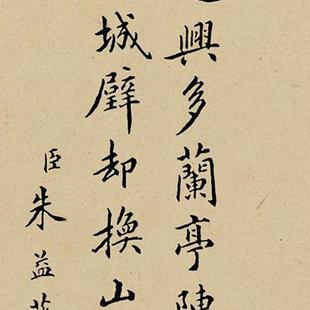 興多蘭亭陳
城壁却換山
臣朱益